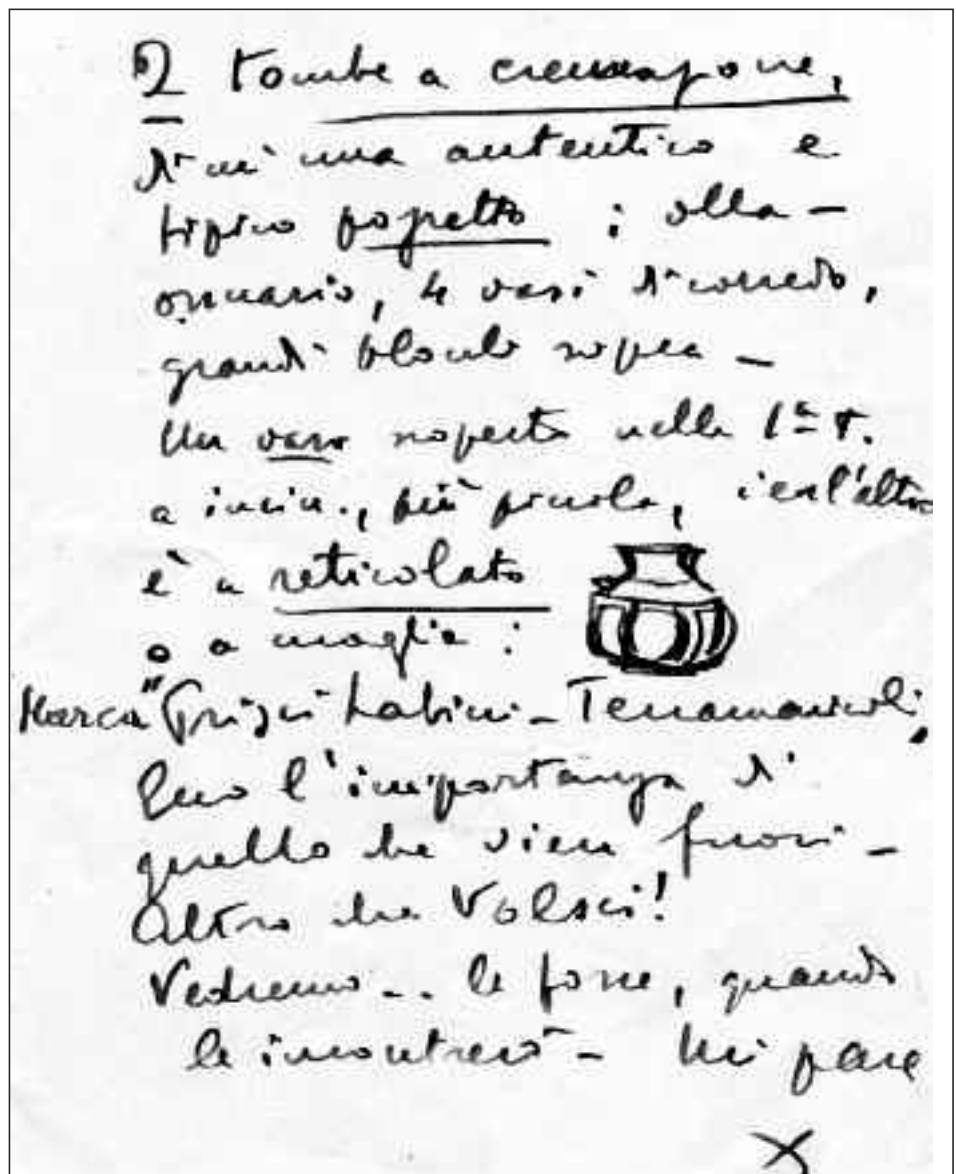 2 tombe a cremazione,
di cui una autentico e
tipico pozzetto : olla -
ossuario, 4 vasi di corredo,
grandi blocchi sopra -
Un vaso scoperto nella 1ª t.
a incin., più piccola, l'altro
è a reticolato
o a maglia :
Marca "Grizi Labini - Terramaricoli",
Ecco l'importanza di
quello che vien fuori -
Altro che Volsci!
Vedremo.. le fosse, quando
le incontrerò - Mi pare
X